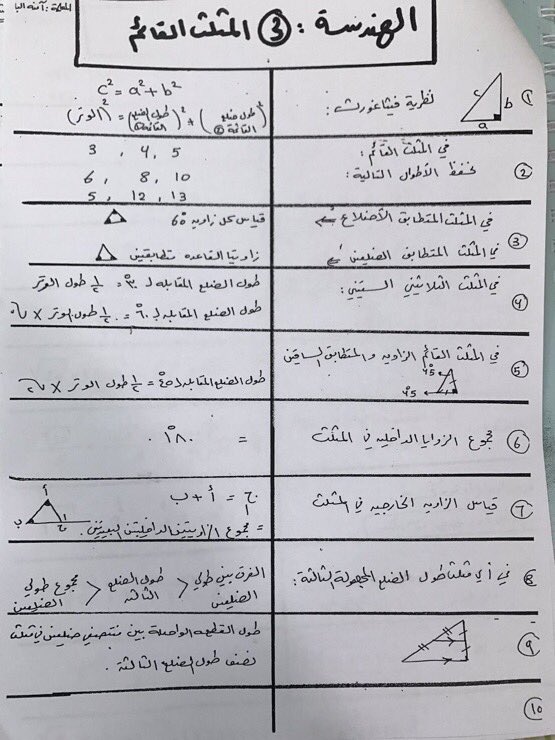 المعلمة : آمنة البا
الهندسة : ③ المثلث القائم
① نظرية فيثاغورث :
c
b
a
c² = a² + b²
(طول ضلع القائمة ②)² + (طول ضلع القائمة ①)² = (الوتر)²
② في المثلث القائم :
نحفظ الأطوال التالية :
3 , 4 , 5
6 , 8 , 10
5 , 12 , 13
③ في المثلث المتطابق الأضلاع ⇐
قياس كل زاويه 60°
في المثلث المتطابق الضلعين ⇐
زاويتا القاعده متطابقتين
④ في المثلث الثلاثيني الستيني :
طول الضلع المقابله لـ ٣٠° = ½ طول الوتر
طول الضلع المقابله لـ ٦٠° = ½ طول الوتر × √٣
⑤ في المثلث القائم الزاويه والمتطابق الساقين
٤٥°
٤٥°
طول الضلع المقابله لـ ٤٥° = ½ طول الوتر × √٢
⑥ مجموع الزوايا الداخليه في المثلث
= ١٨٠°
⑦ قياس الزاويه الخارجيه في المثلث
ج١ = أ + ب
= مجموع الزاويتين الداخليتين البعيدتين .
أ
ب
ج ١
⑧ في أي مثلث طول الضلع المجهولة الثالثة :
الفرق بين طولي الضلعين < طول الضلع الثالثه < مجموع طولي الضلعين
⑨
طول القطعه الواصلة بين منتصفي ضلعين في مثلث
نصف طول الضلع الثالثة .
⑩